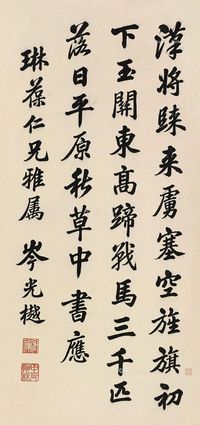 漢將歸来虜塞空旌旗初
下玉關東髙蹄戰馬三千匹
落日平原秋草中書應
琳葆仁兄雅属 岑光樾